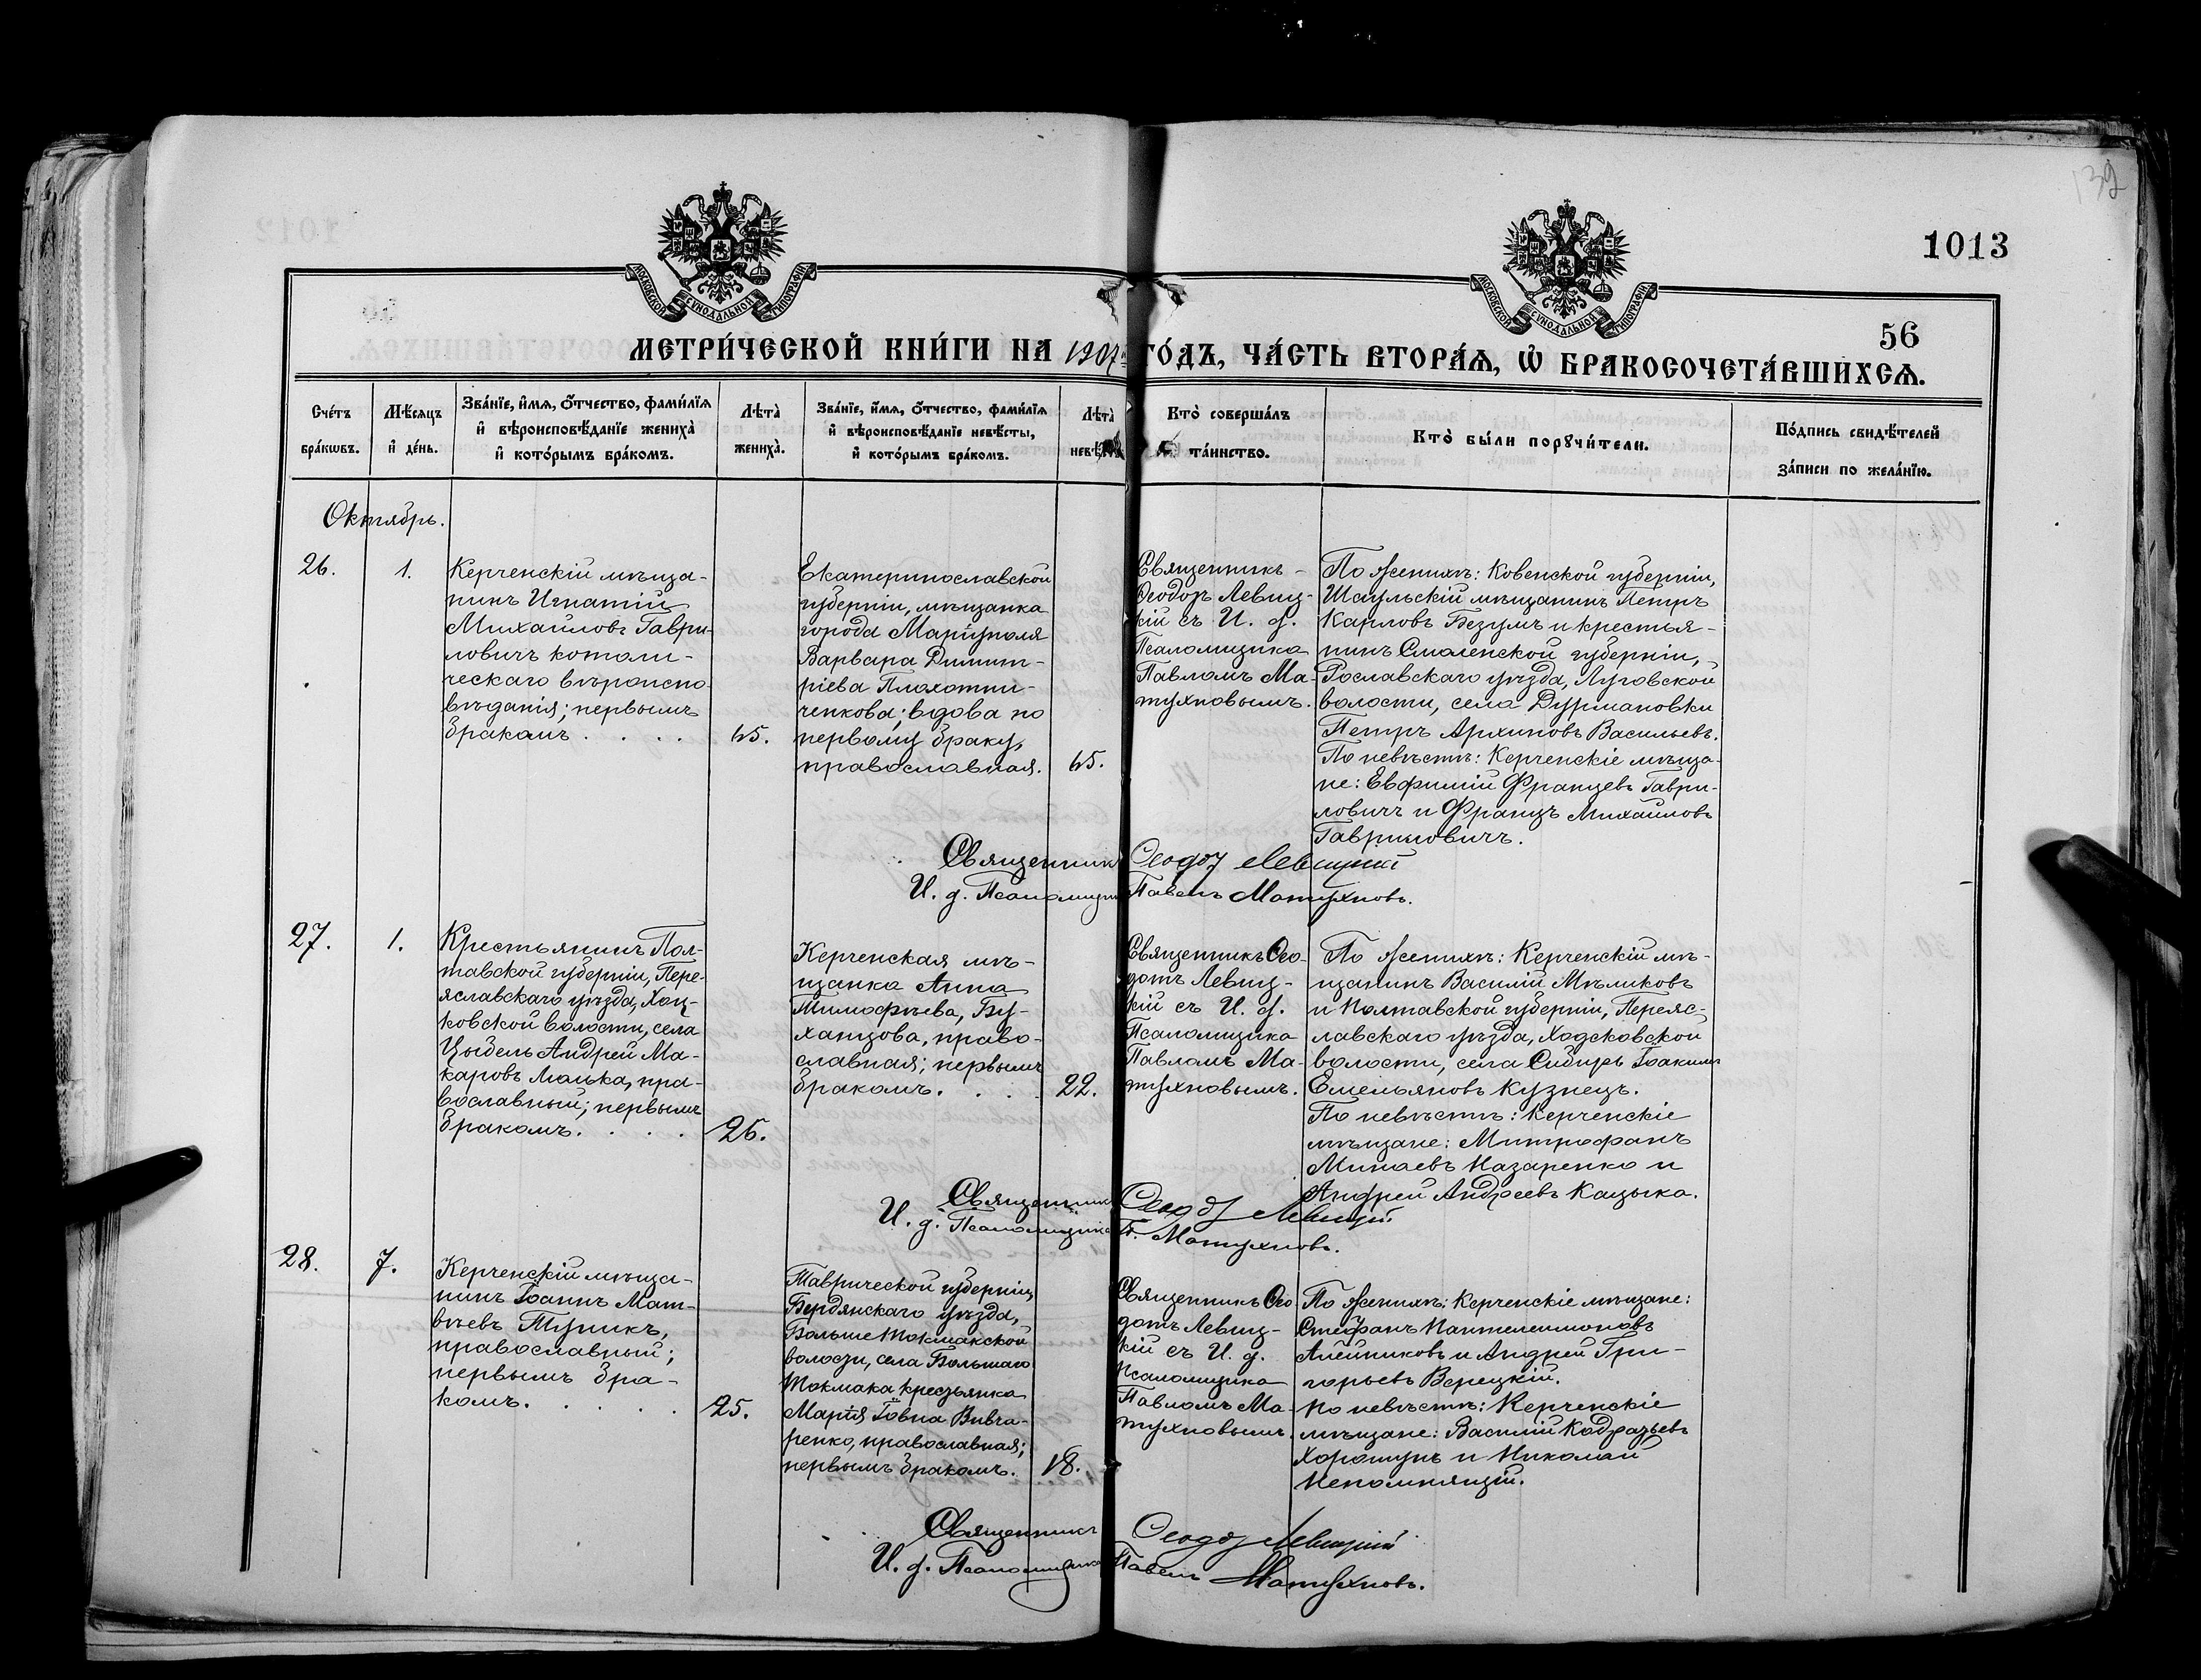 132
1013
МОСКОВСКОЙ СѴНОДАЛЬНОЙ ТИПОГРАФІИ
МОСКОВСКОЙ СѴНОДАЛЬНОЙ ТИПОГРАФІИ
56
МЕТРИ́ЧЕСКОЙ КНИ́ГИ НА 1907 ГО́ДЪ, ЧА́СТЬ ВТОРА́Я, Ѡ҆ БРАКОСОЧЕТА́ВШИХСЯ.
Сче́тъ
бра́кωвъ.
Мѣ́сяцъ
и҆ де́нь.
Зва́нїе, и҆́мя, ѻ҆́тчество, фами́лїя
и҆ вѣроисповѣ́данїе жениха̀
и҆ кото́рымъ бра́комъ.
Лѣта̀
жениха̀.
Зва́нїе, и҆́мя, ѻ҆́тчество, фами́лїя
и҆ вѣроисповѣ́данїе невѣ́сты,
и҆ кото́рымъ бра́комъ.
Лѣта̀
Кто̀ соверша́лъ
та́инство.
Кто̀ бы́ли порꙋчи́тели.
По́дпись свидѣ́телей
за́писи по жела́нїю.
Октябрь.
26.
1.
Керченскій мѣща-
нинъ Игнатій
Михайловъ Гаври-
ловичъ котоли-
ческаго вѣроиспо-
вѣданія; первымъ
бракомъ . . . .
65.
Екатеринославской
губерніи, мѣщанка
города Маріуполя
Варвара Димит-
ріева Плохотни-
ченкова; вдова по
первому браку,
православная.
65.
Священникъ -
Ѳеодоръ Левиц-
кій съ И. д.
Псаломщика
Павломъ Ма-
тухновымъ.
По женихѣ: Ковенской губерніи,
Шаульскій мѣщанинъ Петръ
Карловъ Безумъ и крестья-
нинъ Смоленской губерніи,
Рославскаго уѣзда, Луговской
волости, села Дурмановки
Петръ Архиповъ Васильевъ.
По невѣстѣ: Керченскіе мѣща-
не: Евфимій Францевъ Гаври-
ловичъ и Францъ Михайловъ
Гавриловичъ.
Священникъ Ѳеодоръ Левицкій
И. д. Псаломщика Павелъ Матухновъ.
27.
1.
Крестьянинъ Пол-
тавской губерніи, Пере-
яславскаго уѣзда, Хоц-
ковской волости, села
Цыбель Андрей Ма-
каровъ Люлька, пра-
вославный; первымъ
бракомъ. . . .
26.
Керченская мѣ-
щанка Анна
Тимофѣева, Бу-
ханцова, право-
славная; первымъ
бракомъ. . . .
22.
Священникъ Ѳео-
дотъ Левиц-
кій съ И. д.
Псаломщика
Павломъ Ма-
тухновымъ.
По женихѣ: Керченскій мѣ-
щанинъ Василій Мѣликовъ
и Полтавской губерніи, Переяс-
лавскаго уѣзда, Ходсковской
волости, села Сибирь Іоакимъ
Емельяновъ Кузнецъ.
По невѣстѣ: Керченскіе
мѣщане: Митрофанъ
Минаевъ Назаренко и
Андрей Андреевъ Кацыка.
Священникъ Ѳеодоръ Левицкій
И. д. Псаломщика П. Матухновъ.
28.
7.
Керченскій мѣща-
нинъ Іоаннъ Мат-
вѣевъ Тупикъ,
православный;
первымъ бра-
комъ. . . . .
25.
Таврической губерніи,
Бердянскаго уѣзда,
Больше Токмакской
волости, села Большаго
Токмака крестьянка
Марія Іовна Вивча-
ренко, православная;
первымъ бракомъ.
18.
Священникъ Ѳео
дотъ Левиц-
кій съ И. д.
Псаломщика
Павломъ Ма-
тухновымъ.
По женихѣ: Керченскіе мѣщане:
Стефанъ Пантелеимоновъ
Алейниковъ и Андрей Гри-
горьевъ Верецкій.
По невѣстѣ: Керченскіе
мѣщане: Василій Кодратьевъ
Хорошунъ и Николай
Непомнящій.
Священникъ Ѳеодоръ Левицкій
И. д. Псаломщика Павелъ Матухновъ.